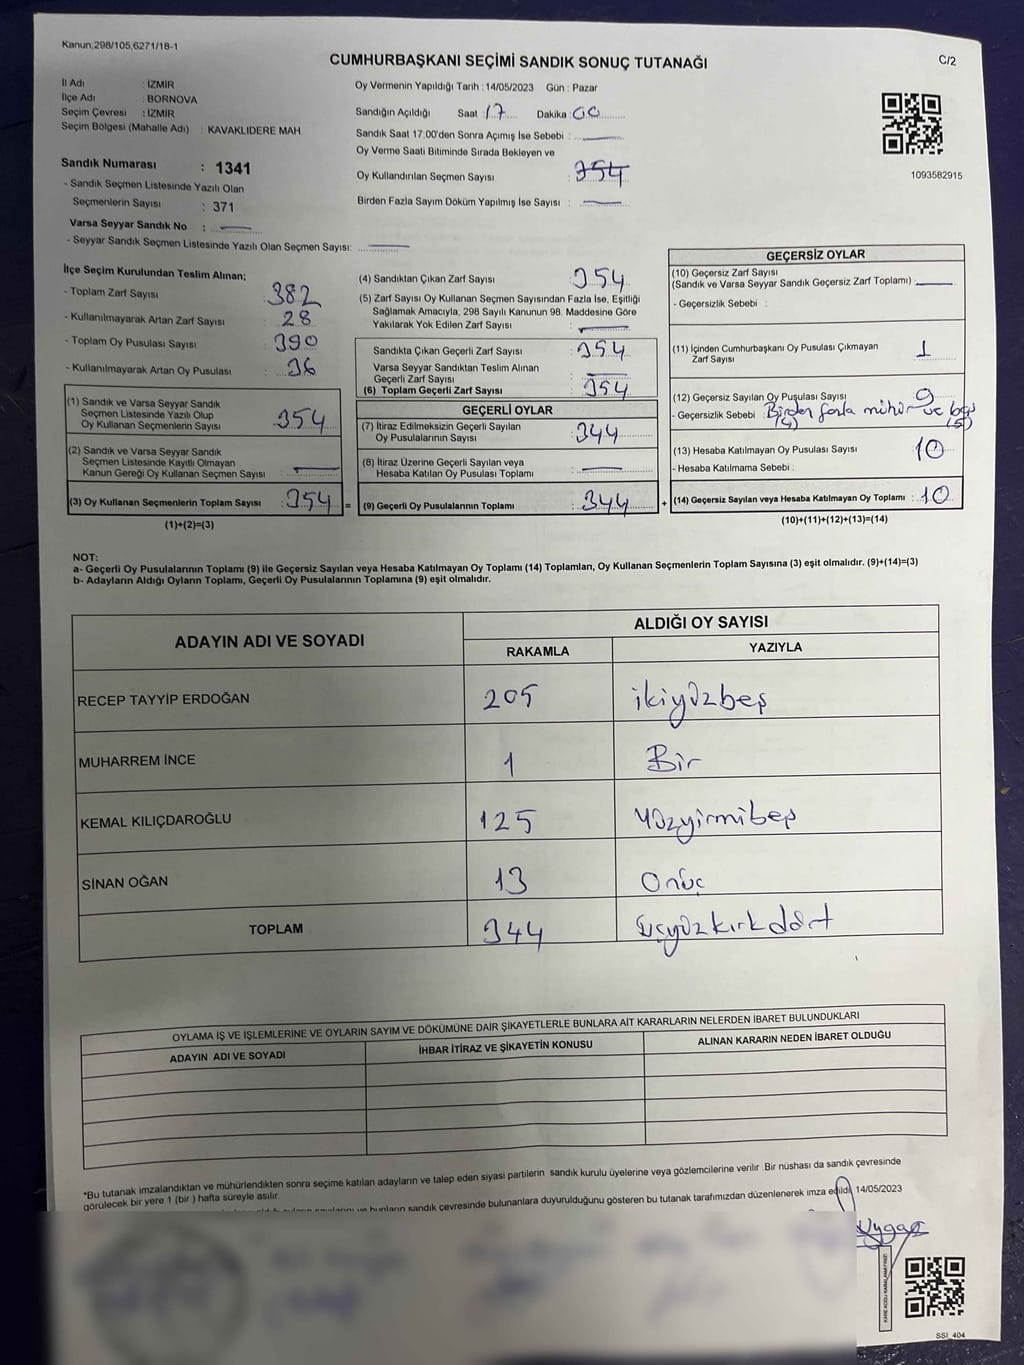 Kanun;298/105,6271/18-1
CUMHURBAŞKANI SEÇİMİ SANDIK SONUÇ TUTANAĞI
C/2
İl Adı : İZMİR
İlçe Adı : BORNOVA
Seçim Çevresi : İZMİR
Seçim Bölgesi (Mahalle Adı) : KAVAKLIDERE MAH
Sandık Numarası : 1341
- Sandık Seçmen Listesinde Yazılı Olan
Seçmenlerin Sayısı : 371
Varsa Seyyar Sandık No :
- Seyyar Sandık Seçmen Listesinde Yazılı Olan Seçmen Sayısı:
Oy Vermenin Yapıldığı Tarih : 14/05/2023 Gün : Pazar
Sandığın Açıldığı Saat : 17 Dakika : 00
Sandık Saat 17:00'den Sonra Açılmış İse Sebebi :
Oy Verme Saati Bitiminde Sırada Bekleyen ve
Oy Kullandırılan Seçmen Sayısı : 354
Birden Fazla Sayım Döküm Yapılmış İse Sayısı :
1093582915
İlçe Seçim Kurulundan Teslim Alınan;
- Toplam Zarf Sayısı : 382
- Kullanılmayarak Artan Zarf Sayısı : 28
- Toplam Oy Pusulası Sayısı : 390
- Kullanılmayarak Artan Oy Pusulası : 36
(1) Sandık ve Varsa Seyyar Sandık
Seçmen Listesinde Yazılı Olup
Oy Kullanan Seçmenlerin Sayısı : 354
(2) Sandık ve Varsa Seyyar Sandık
Seçmen Listesinde Kayıtlı Olmayan
Kanun Gereği Oy Kullanan Seçmen Sayısı :
(3) Oy Kullanan Seçmenlerin Toplam Sayısı : 354 =
(1)+(2)=(3)
(4) Sandıktan Çıkan Zarf Sayısı : 354
(5) Zarf Sayısı Oy Kullanan Seçmen Sayısından Fazla İse, Eşitliği
Sağlamak Amacıyla, 298 Sayılı Kanunun 98. Maddesine Göre
Yakılarak Yok Edilen Zarf Sayısı :
Sandıkta Çıkan Geçerli Zarf Sayısı : 354
Varsa Seyyar Sandıktan Teslim Alınan
Geçerli Zarf Sayısı :
(6) Toplam Geçerli Zarf Sayısı : 354
GEÇERLİ OYLAR
(7) İtiraz Edilmeksizin Geçerli Sayılan
Oy Pusulalarının Sayısı : 344
(8) İtiraz Üzerine Geçerli Sayılan veya
Hesaba Katılan Oy Pusulası Toplamı :
(9) Geçerli Oy Pusulalarının Toplamı : 344 +
GEÇERSİZ OYLAR
(10) Geçersiz Zarf Sayısı
(Sandık ve Varsa Seyyar Sandık Geçersiz Zarf Toplamı)
- Geçersizlik Sebebi :
(11) İçinden Cumhurbaşkanı Oy Pusulası Çıkmayan
Zarf Sayısı : 1
(12) Geçersiz Sayılan Oy Pusulası Sayısı : 9
- Geçersizlik Sebebi : Birden fazla mühür ve boş
(4) (5)
(13) Hesaba Katılmayan Oy Pusulası Sayısı : 10
- Hesaba Katılmama Sebebi :
(14) Geçersiz Sayılan veya Hesaba Katılmayan Oy Toplamı : 10
(10)+(11)+(12)+(13)=(14)
NOT:
a- Geçerli Oy Pusulalarının Toplamı (9) ile Geçersiz Sayılan veya Hesaba Katılmayan Oy Toplamı (14) Toplamları, Oy Kullanan Seçmenlerin Toplam Sayısına (3) eşit olmalıdır. (9)+(14)=(3)
b- Adayların Aldığı Oyların Toplamı, Geçerli Oy Pusulalarının Toplamına (9) eşit olmalıdır.
ADAYIN ADI VE SOYADI
ALDIĞI OY SAYISI
RAKAMLA YAZIYLA
RECEP TAYYİP ERDOĞAN 205 ikiyüzbeş
MUHARREM İNCE 1 Bir
KEMAL KILIÇDAROĞLU 125 Yüzyirmibeş
SİNAN OĞAN 13 Onüç
TOPLAM 344 üçyüzkırkdört
OYLAMA İŞ VE İŞLEMLERİNE VE OYLARIN SAYIM VE DÖKÜMÜNE DAİR ŞİKAYETLERLE BUNLARA AİT KARARLARIN NELERDEN İBARET BULUNDUKLARI
ADAYIN ADI VE SOYADI
İHBAR İTİRAZ VE ŞİKAYETİN KONUSU
ALINAN KARARIN NEDEN İBARET OLDUĞU
*Bu tutanak imzalandıktan ve mühürlendikten sonra seçime katılan adayların ve talep eden siyasi partilerin sandık kurulu üyelerine veya gözlemcilerine verilir .Bir nüshası da sandık çevresinde
görülecek bir yere 1 (bir ) hafta süreyle asılır.
ve bunların sandık çevresinde bulunanlara duyurulduğunu gösteren bu tutanak tarafımızdan düzenlenerek imza edildi. 14/05/2023
SSI_404